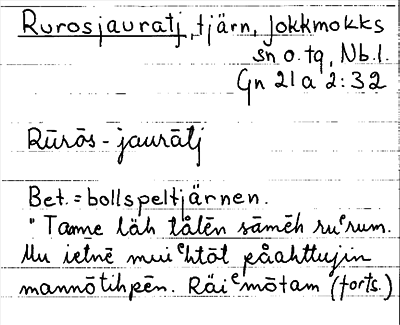 Rurosjauratj, tjärn, Jokkmokks
sn o. tg, Nb.l.
Gn 21 a 2:32
Rūrōs-jaurātj
Bet. = bollspeltjärnen.
"Tamne läh tålēn sāmēh ruᵉrum.
Mu ietnē mui ᵉhtōt påahttujin
mannōtihpēn. Räiᵉmōtam (forts.)